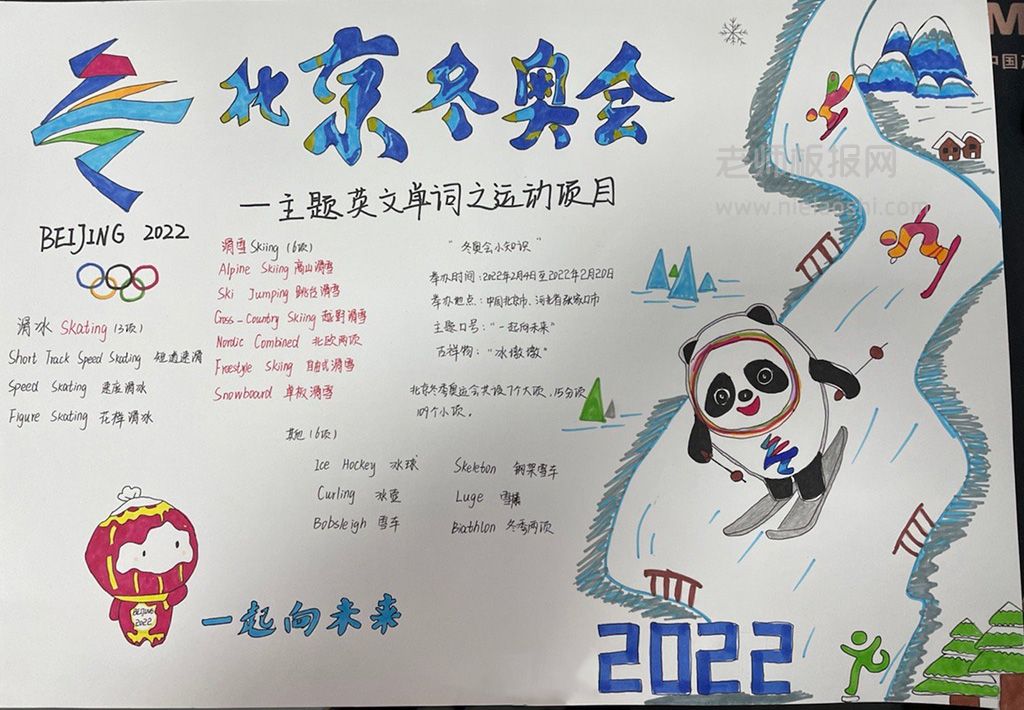 北京冬奥会
—主题英文单词之运动项目
BEIJING 2022
滑冰 Skating (3项)
Short Track Speed Skating 短道速滑
Speed Skating 速度滑冰
Figure Skating 花样滑冰
滑雪 Skiing (6项)
Alpine Skiing 高山滑雪
Ski Jumping 跳台滑雪
Cross-Country Skiing 越野滑雪
Nordic Combined 北欧两项
Freestyle Skiing 自由式滑雪
Snowboard 单板滑雪
"冬奥会小知识"
举办时间:2022年2月4日至2022年2月20日
举办地点:中国北京市、河北省张家口市
主题口号:"一起向未来"
吉祥物:"冰墩墩"
北京冬季奥运会共设7个大项,15分项
109个小项。
其他(6项)
Ice Hockey 冰球
Curling 冰壶
Bobsleigh 雪车
Skeleton 钢架雪车
Luge 雪橇
Biathlon 冬季两项
BEIJING
2022
一起向未来
2022
老师板报网
M
中国